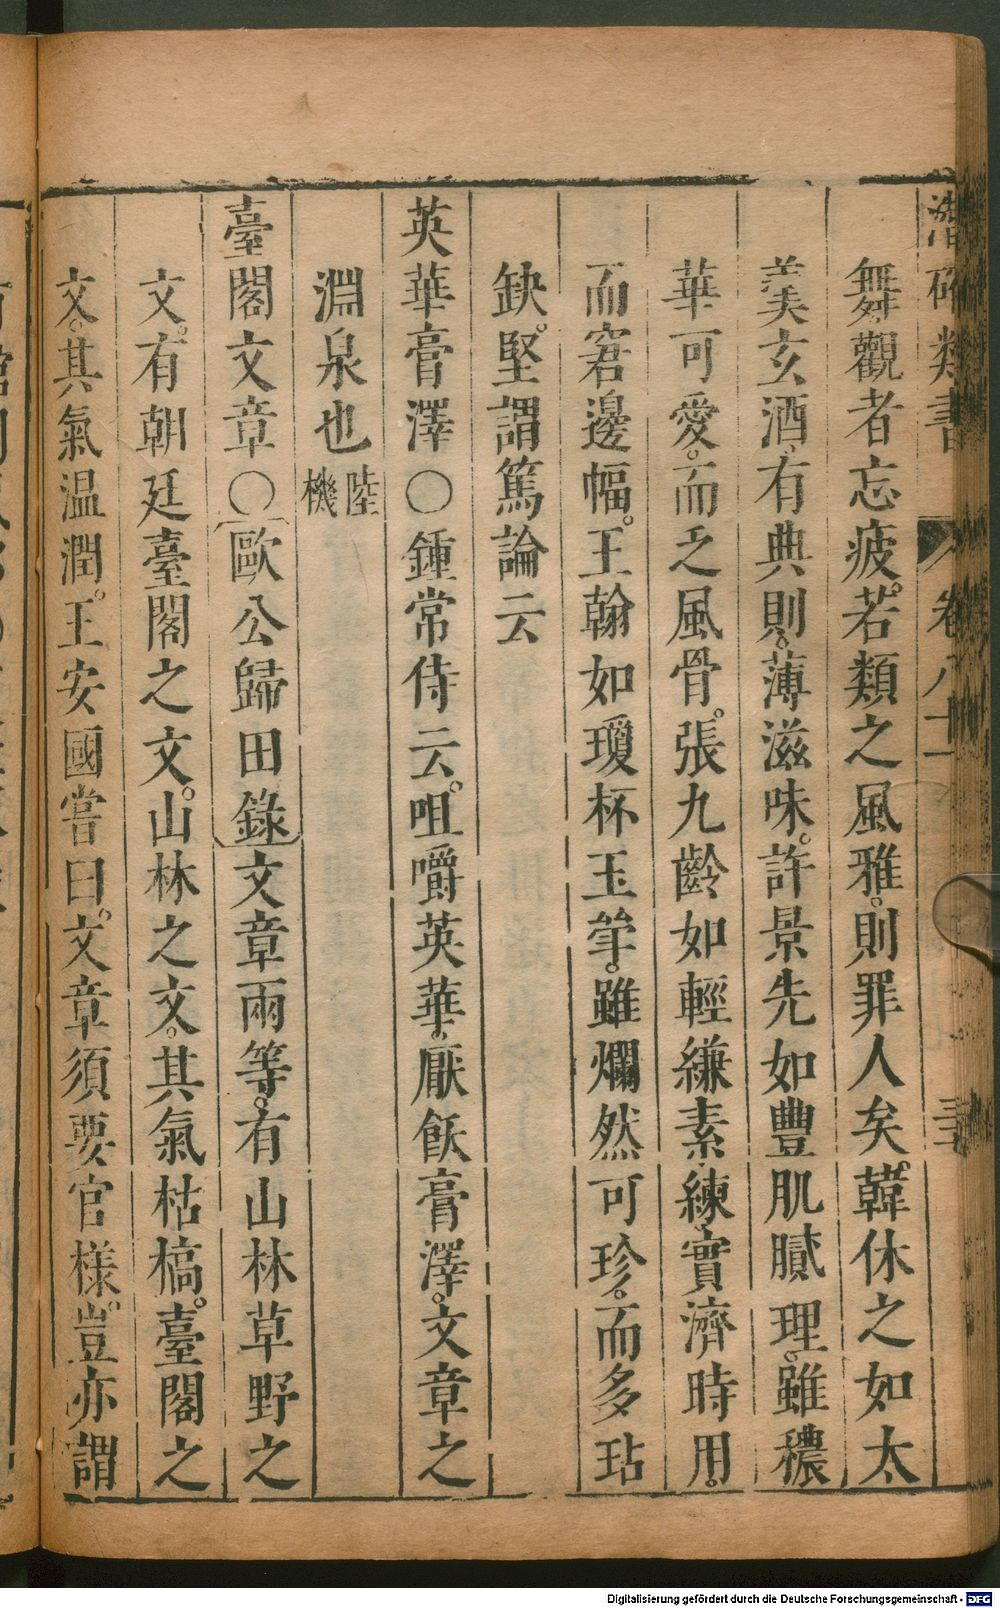 潛確類書 卷八十一 三
舞觀者忘疲。若類之風雅。則罪人矣。韓休之如太
羹玄酒。有典則。薄滋味。許景先如豐肌膩理。雖穠
華可愛。而乏風骨。張九齡如輕縑素練。實濟時用。
而窘邊幅。王翰如瓊杯玉斝。雖爛然可珍。而多玷
缺。堅謂篤論云
英華膏澤○鍾常侍云。咀嚼英華。厭飫膏澤。文章之
淵泉也陸機
臺閣文章○歐公歸田錄文章兩等。有山林草野之
文。有朝廷臺閣之文。山林之文。其氣枯槁。臺閣之
文。其氣温潤。王安國嘗曰。文章須要官樣。豈亦謂
Digitalisierung gefördert durch die Deutsche Forschungsgemeinschaft - DFG